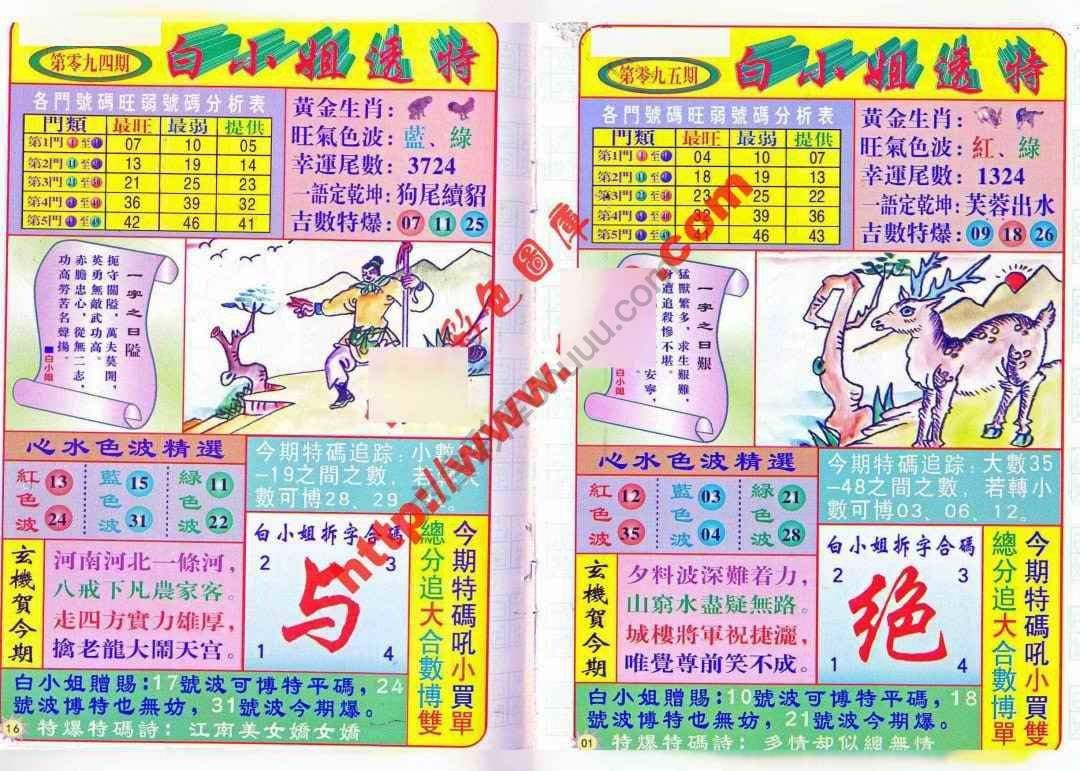 第零九四期
白小姐透特
各門號碼旺弱號碼分析表
門類 最旺 最弱 提供
第1門 至 07 10 05
第2門 至 13 19 14
第3門 至 21 25 23
第4門 至 36 39 32
第5門 至 42 46 41
黃金生肖:
旺氣色波: 藍、綠
幸運尾數: 3724
一語定乾坤: 狗尾續貂
吉數特爆: 07 11 25
一字之曰隘
扼守關隘,萬夫莫開,
英勇無敵武功高。
赤膽忠心,從無二志,
功高勞苦名聲揚。
■白小姐
心水色波精選
紅色波 13 24
藍色波 15 31
綠色波 11 22
今期特碼追踪: 小數
-19之間之數,若
數可博28、29
玄機賀今期
河南河北一條河,
八戒下凡農家客。
走四方實力雄厚,
擒老龍大鬧天宮。
白小姐拆字合碼
2 3
与
1 4
總分追大合數博雙
今期特碼吼小買單
白小姐贈賜:17號波可博特平碼,24
號波博特也無妨,31號波今期爆。
16
特爆特碼詩: 江南美女嬌女嬌
第零九五期
白小姐透特
各門號碼旺弱號碼分析表
門類 最旺 最弱 提供
第1門 至 04 10 07
第2門 至 18 19 13
第3門 至 23 25 22
第4門 至 32 39 36
第5門 至 46 43
黃金生肖:
旺氣色波: 紅、綠
幸運尾數: 1324
一語定乾坤: 芙蓉出水
吉數特爆: 09 18 26
一字之曰艱
猛獸繁多,求生艱難,
安寧,
遭追殺慘不堪。
白小姐
心水色波精選
紅色波 12 35
藍色波 03 04
綠色波 21 28
今期特碼追踪: 大數35
-48之間之數,若轉小
數可博03、06、12。
玄機賀今期
夕料波深難着力,
山窮水盡疑無路。
城樓將軍祝捷灑,
唯覺尊前笑不成。
白小姐拆字合碼
2 3
绝
1 4
總分追大合數博單
今期特碼吼小買雙
白小姐贈賜:10號波可博特平碼,18
號波博特也無妨,21號波今期爆。
01
特爆特碼詩: 多情却似總無情
彩色圖庫
http://www.
.com